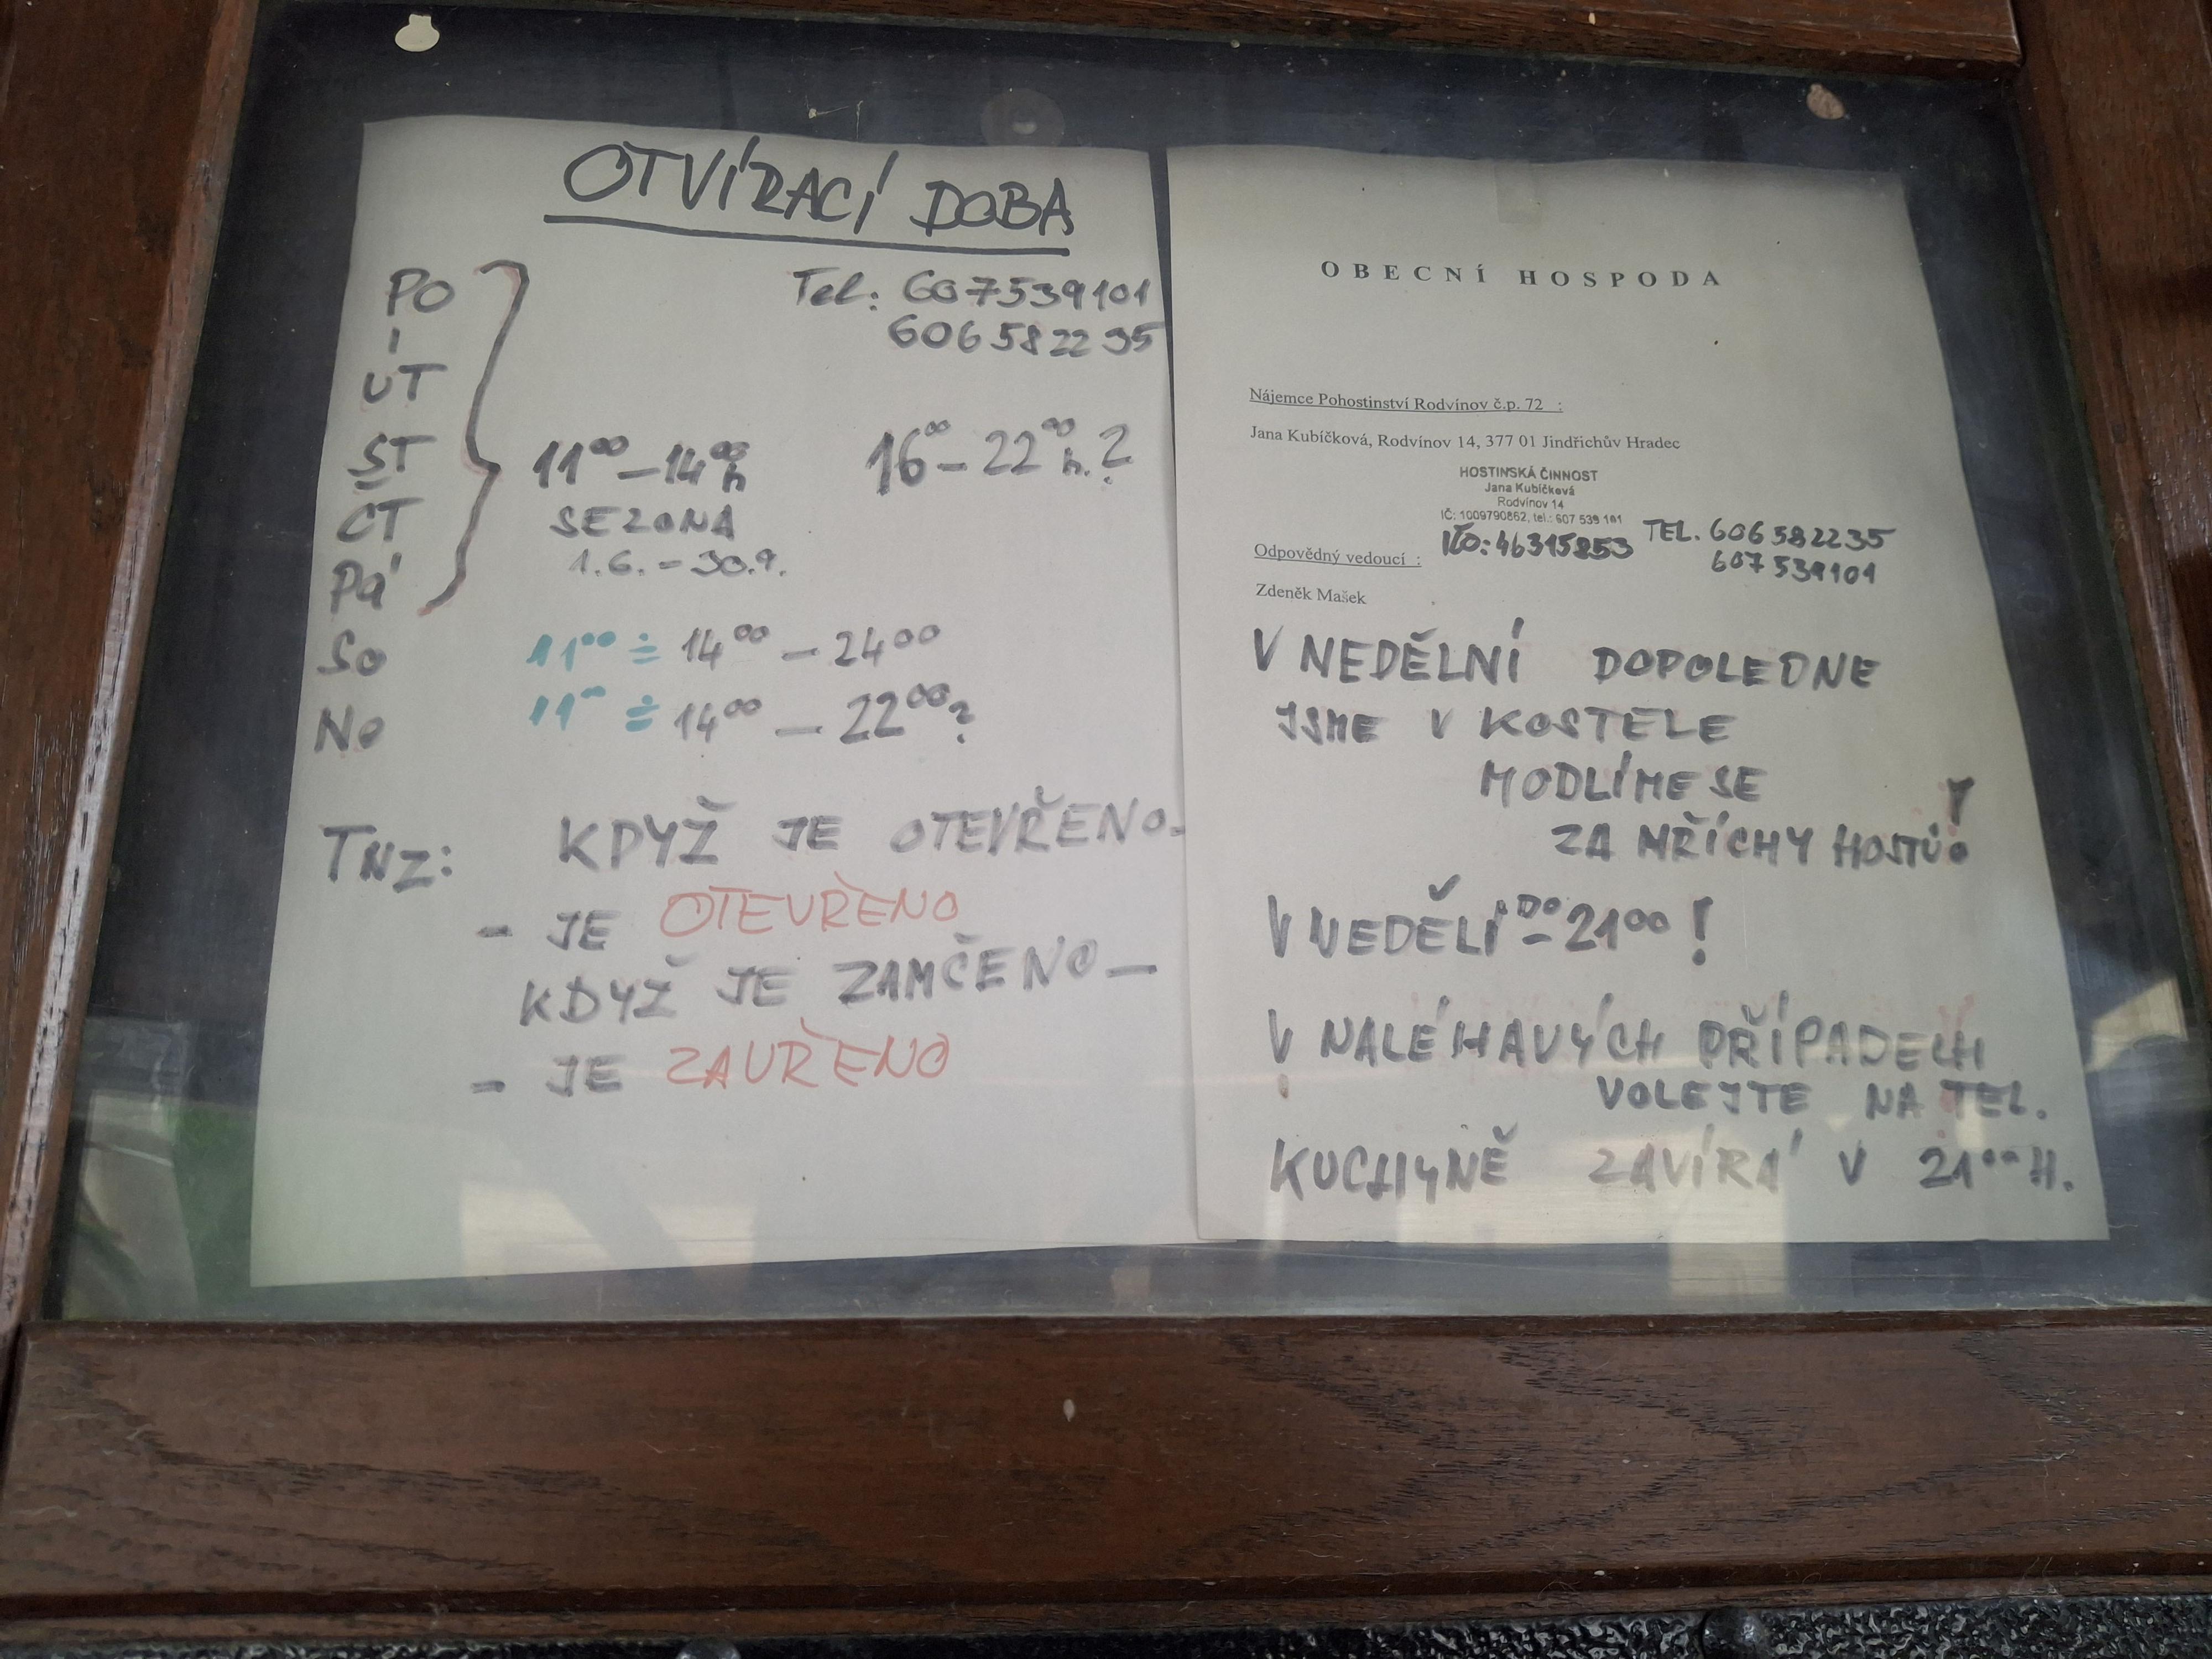 OTVÍRACÍ DOBA
Tel: 607539101
606582235
PO
ÚT
ST
ČT
PÁ
11⁰⁰ – 14⁰⁰ h 16⁰⁰ – 22⁰⁰ h. ?
SEZONA
1.6. – 30.9.
So 11⁰⁰ ÷ 14⁰⁰ – 24⁰⁰
Ne 11⁰⁰ ÷ 14⁰⁰ – 22⁰⁰ ?
TNZ: KDYŽ JE OTEVŘENO –
– JE OTEVŘENO
KDYŽ JE ZAMČENO –
– JE ZAVŘENO
OBECNÍ HOSPODA
Nájemce Pohostinství Rodvínov č.p. 72 :
Jana Kubíčková, Rodvínov 14, 377 01 Jindřichův Hradec
HOSTINSKÁ ČINNOST
Jana Kubíčková
Rodvínov 14
IČ: 1009790862, tel.: 607 539 101
IČO: 46315853 TEL. 606 582235
607 539101
Odpovědný vedoucí :
Zdeněk Mašek
V NEDĚLNÍ DOPOLEDNE
JSME V KOSTELE
MODLÍME SE
ZA HŘÍCHY HOSTŮ!
V NEDĚLI DO – 21⁰⁰ !
V NALÉHAVÝCH PŘÍPADECH
VOLEJTE NA TEL.
KUCHYNĚ ZAVÍRÁ V 21⁰⁰ H.